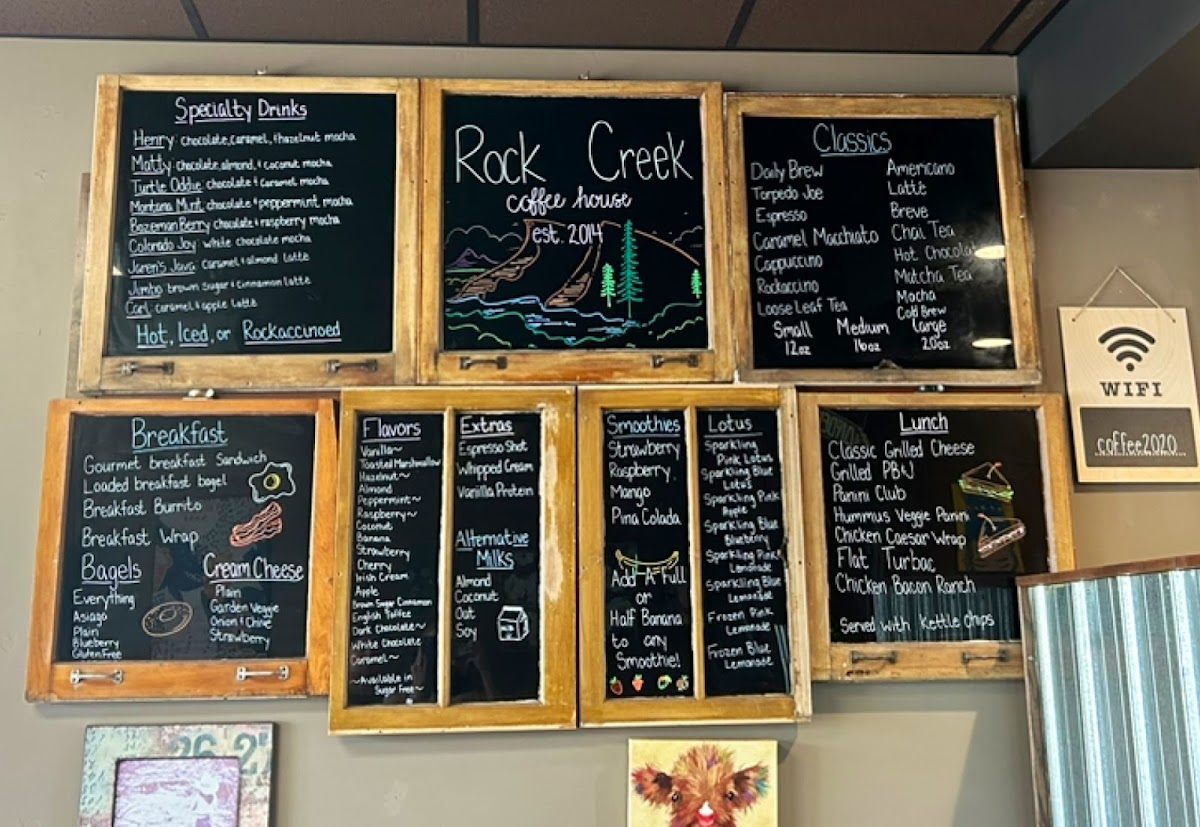 Specialty Drinks
Henry: chocolate, caramel, & hazelnut mocha
Matty: chocolate, almond, & coconut mocha
Turtle Oddie: chocolate & caramel mocha
Montana Mint: chocolate & peppermint mocha
Bozeman Berry: chocolate & raspberry mocha
Colorado Joy: white chocolate mocha
Jaren's Java: caramel & almond latte
Jimbo: brown sugar & cinnamon latte
Carl: caramel & apple latte
Hot, Iced, or Rockaccinoed
Rock Creek
coffee house
est. 2014
Classics
Daily Brew
Torpedo Joe
Espresso
Caramel Macchiato
Cappuccino
Rockaccino
Loose Leaf Tea
Americano
Latté
Breve
Chai Tea
Hot Chocolate
Matcha Tea
Mocha
Cold Brew
Small Medium Large
12oz 16oz 20oz
WIFI
coffee2020
Breakfast
Gourmet breakfast Sandwich
Loaded breakfast bagel
Breakfast Burrito
Breakfast Wrap
Bagels
Everything
Asiago
Plain
Blueberry
Gluten Free
Cream Cheese
Plain
Garden Veggie
Onion & Chive
Strawberry
Flavors
Vanilla~
Toasted Marshmallow
Hazelnut~
Almond
Peppermint~
Raspberry~
Coconut
Banana
Strawberry
Cherry
Irish Cream
Apple
Brown Sugar Cinnamon
English Toffee
Dark Chocolate~
White Chocolate
Caramel~
~Available in
Sugar Free~
Extras
Espresso Shot
Whipped Cream
Vanilla Protein
Alternative
Milks
Almond
Coconut
Oat
Soy
Smoothies
Strawberry
Raspberry
Mango
Pina Colada
Add A Full
or
Half Banana
to any
Smoothie!
Lotus
Sparkling
Pink Lotus
Sparkling Blue
Lotus
Sparkling Pink
Apple
Sparkling Blue
Blueberry
Sparkling Pink
Lemonade
Sparkling Blue
Lemonade
Frozen Pink
Lemonade
Frozen Blue
Lemonade
Lunch
Classic Grilled Cheese
Grilled PB&J
Panini Club
Hummus Veggie Panini
Chicken Caesar Wrap
Flat Turbac
Chicken Bacon Ranch
Served with Kettle Chips
26.2